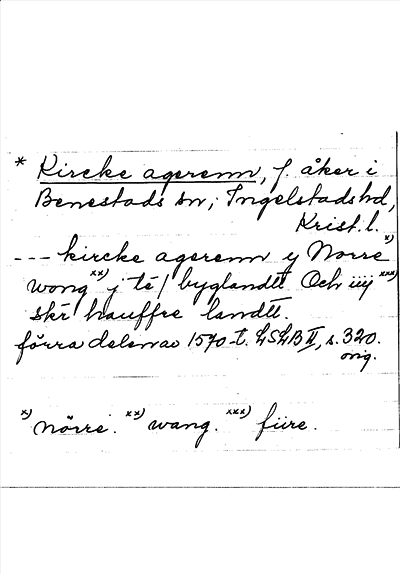 * Kircke agerenn, f. åker i
Benestads sn, Ingelstads hd,
Krist. l.
--- kircke agerenn y Norre x)
wong xx) j té / byglandtt. Och iiij xxx)
skr hauffre landtt.
förra delen av 1570-t. LSLB II, s. 320.
orig.
x) nörre. xx) wang. xxx) fiire.